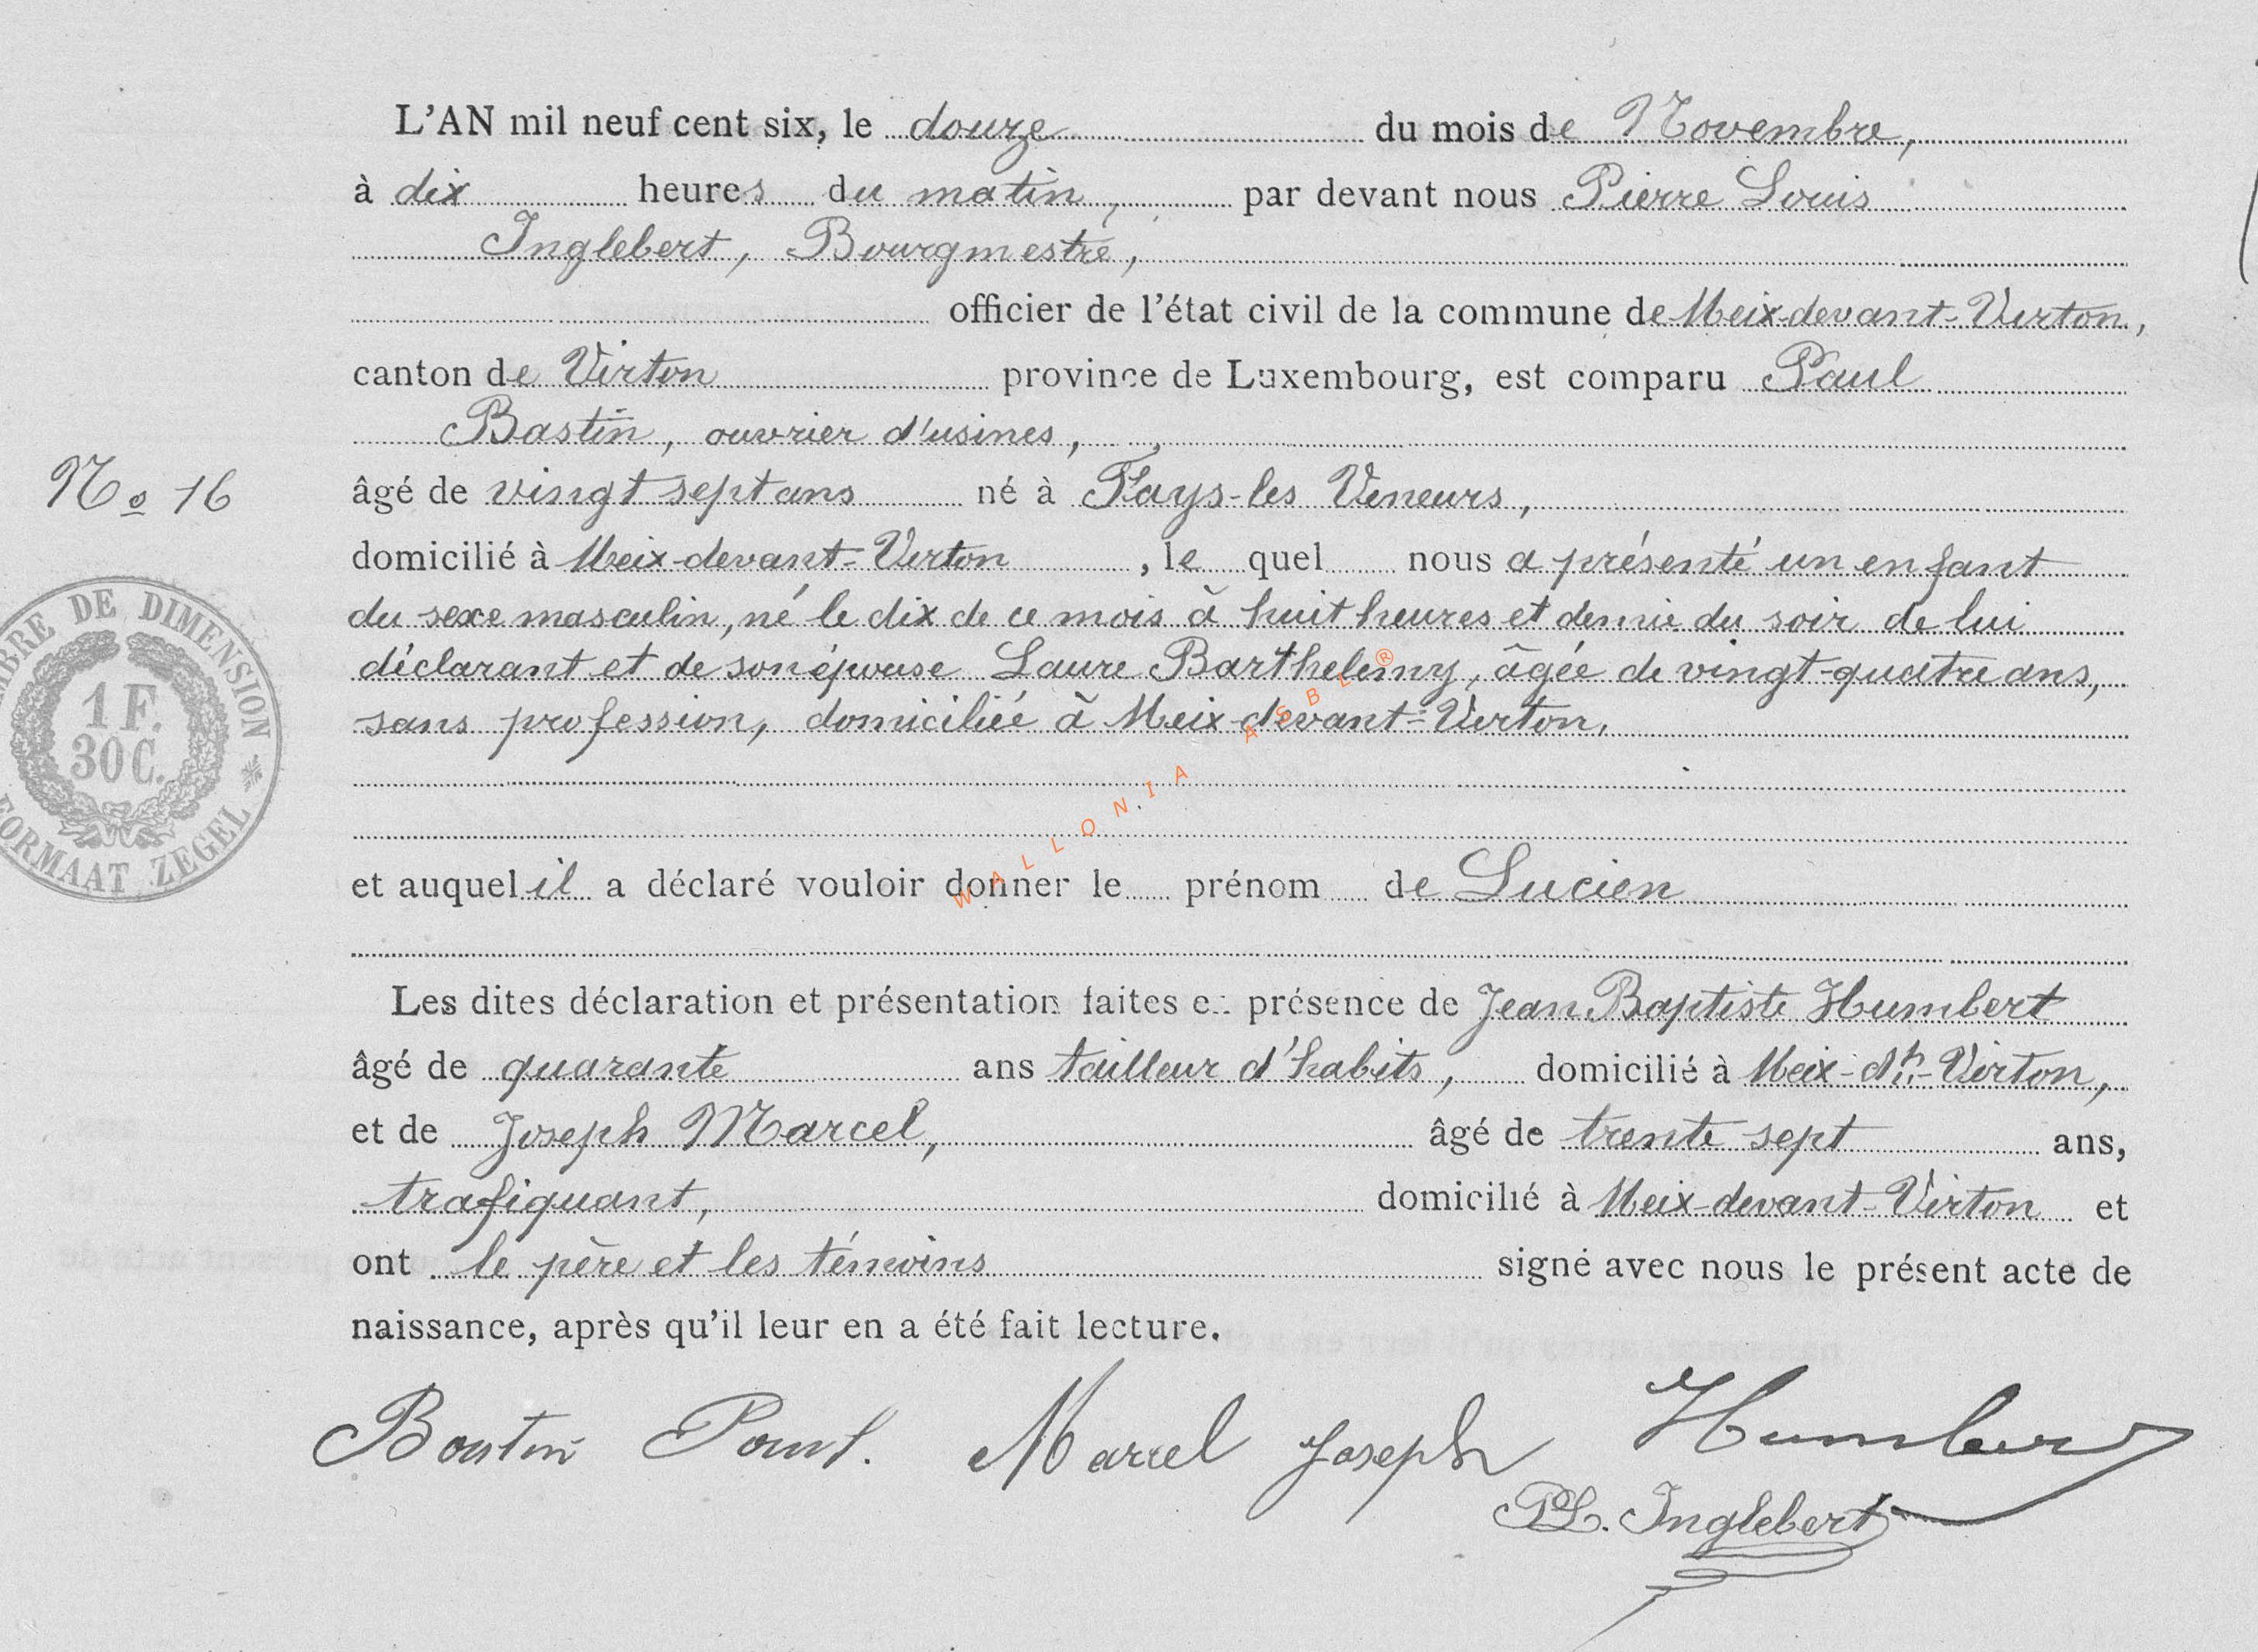 L'AN mil neuf cent six, le douze du mois de Novembre,
à dix heures du matin, par devant nous Pierre Louis
Inglebert, Bourgmestre,
officier de l'état civil de la commune de Meix-devant-Virton,
canton de Virton province de Luxembourg, est comparu Paul
Bastin, ouvrier d'usines,
No 16
âgé de vingt sept ans né à Fays-les Veneurs,
domicilié à Meix-devant-Virton, le quel nous a présenté un enfant
du sexe masculin, né le dix de ce mois à huit heures et demie du soir de lui
déclarant et de son épouse Laure Barthelemy, âgée de vingt-quatre ans,
sans profession, domiciliée à Meix-devant-Virton.
TIMBRE DE DIMENSION
1 F.
30 C.
FORMAAT ZEGEL
WALLONIA ASBL ®
et auquel il a déclaré vouloir donner le prénom de Lucien
Les dites déclaration et présentation faites en présence de Jean Baptiste Humbert
âgé de quarante ans tailleur d'habits, domicilié à Meix-dt-Virton,
et de Joseph Marcel, âgé de trente sept ans,
trafiquant, domicilié à Meix-devant-Virton et
ont le père et les témoins signé avec nous le présent acte de
naissance, après qu'il leur en a été fait lecture.
Bastin Paul. Marcel Joseph Humbert
PL. Inglebert